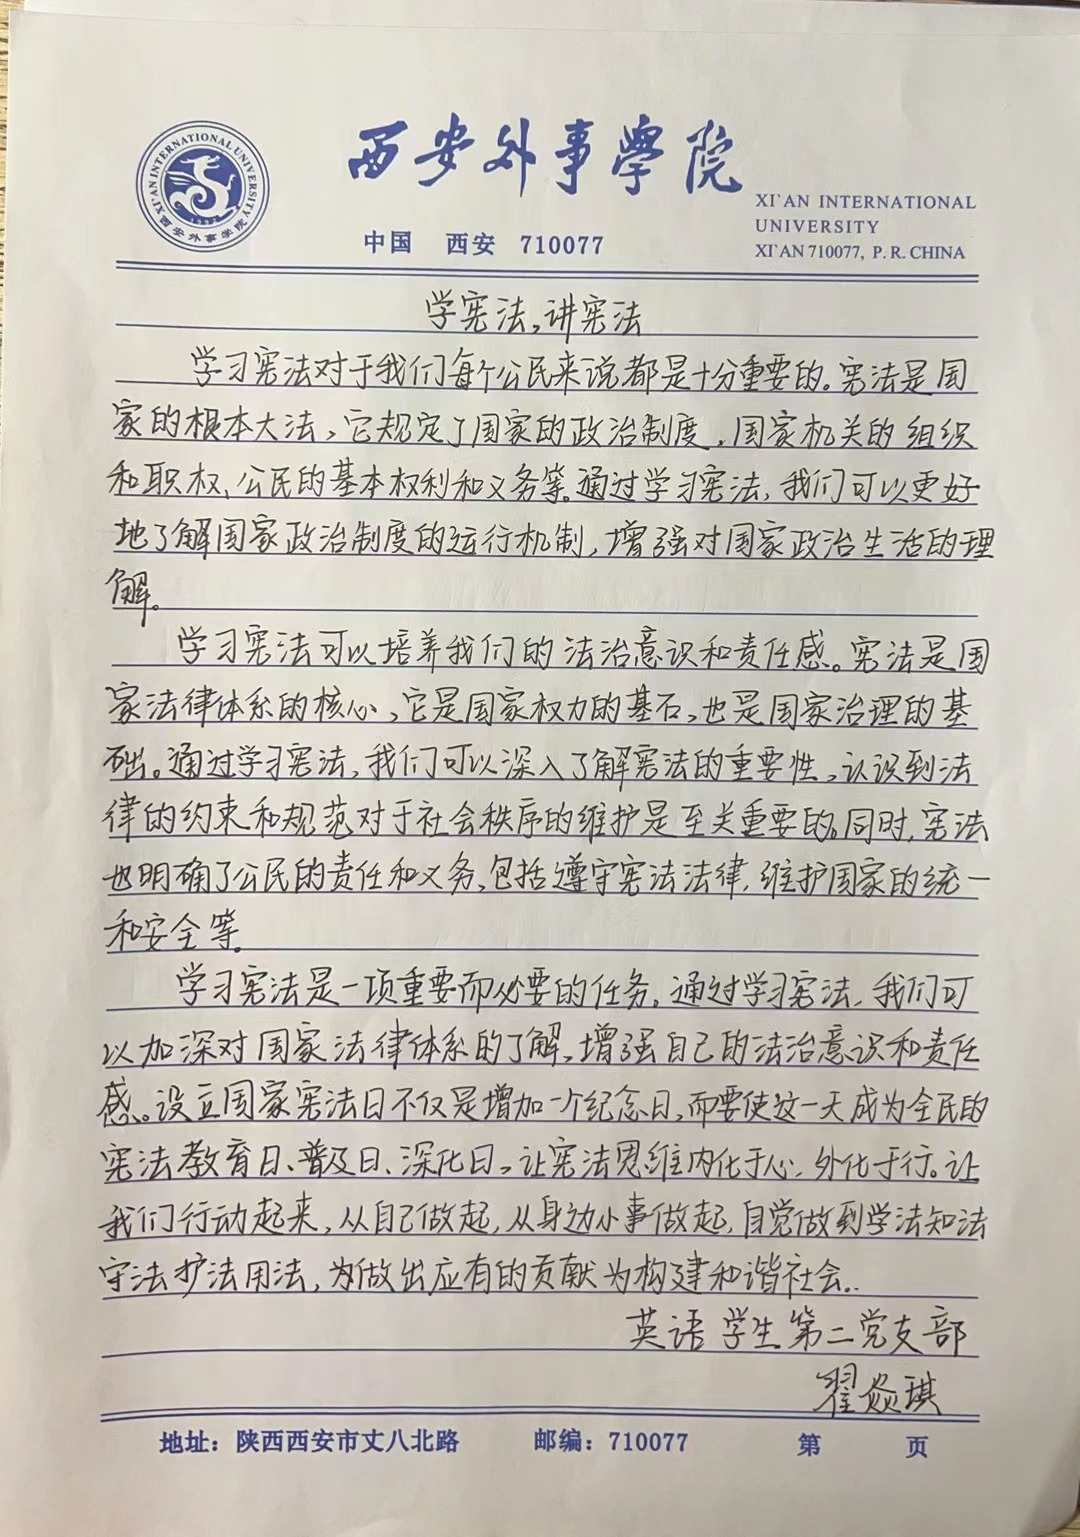 西安外事學院
XI'AN INTERNATIONAL UNIVERSITY
西安外事学院
1992
XI'AN INTERNATIONAL
UNIVERSITY
XI'AN 710077, P. R. CHINA
中国 西安 710077
学宪法,讲宪法
学习宪法对于我们每个公民来说都是十分重要的。宪法是国
家的根本大法,它规定了国家的政治制度,国家机关的组织
和职权、公民的基本权利和义务等。通过学习宪法,我们可以更好
地了解国家政治制度的运行机制,增强对国家政治生活的理
解。
学习宪法可以培养我们的法治意识和责任感。宪法是国
家法律体系的核心,它是国家权力的基石,也是国家治理的基
础。通过学习宪法,我们可以深入了解宪法的重要性,认识到法
律的约束和规范对于社会秩序的维护是至关重要的。同时,宪法
也明确了公民的责任和义务,包括遵守宪法法律,维护国家的统一
和安全等。
学习宪法是一项重要而必要的任务。通过学习宪法,我们可
以加深对国家法律体系的了解,增强自己的法治意识和责任
感。设立国家宪法日不仅是增加一个纪念日,而要使这一天成为全民的
宪法教育日、普及日、深化日。让宪法思维内化于心,外化于行。让
我们行动起来,从自己做起,从身边小事做起,自觉做到学法知法
守法护法用法,为做出应有的贡献为构建和谐社会。
英语学生第二党支部
翟焱琪
地址：陕西西安市丈八北路 邮编：710077 第 页